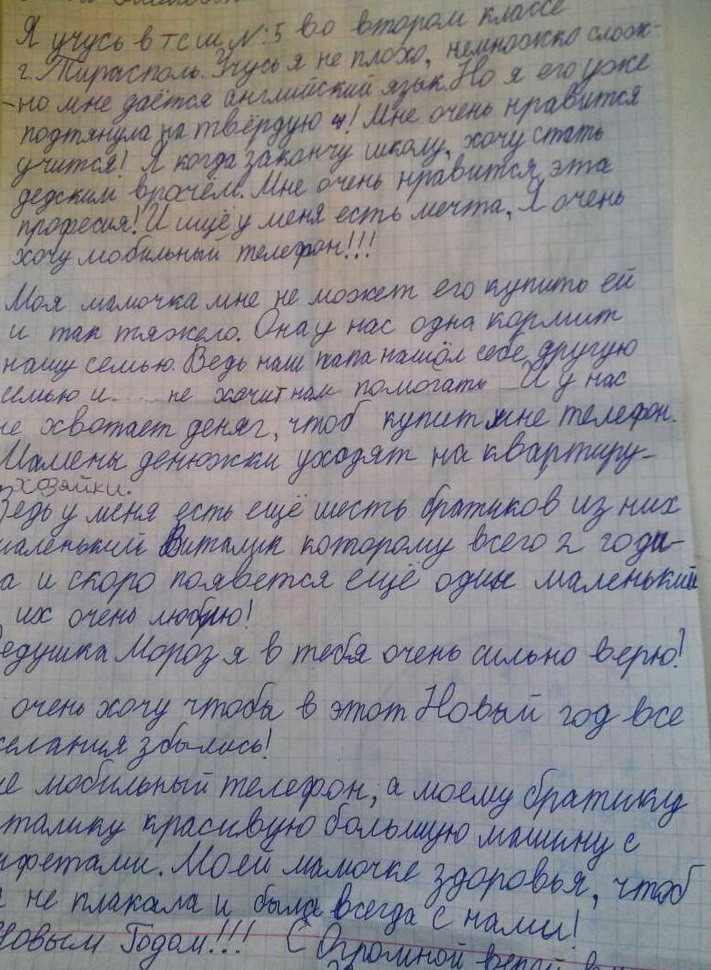 Я учусь в тсш №:5 во втором классе
г. Тирасполь. Учусь я не плохо, немножко слож-
-но мне даётся английский язык. Но я его уже
подтянула на твёрдую 4! Мне очень нравится
учится! Я когда закончу школу, хочу стать
дедским врачём. Мне очень нравится эта
професия! И ищё у меня есть мечта, Я очень
хочу мобильный телефон!!!
Моя мамочка мне не может его купить ей
и так тяжело. Она у нас одна кормит
нашу семью. Ведь наш папа нашёл себе другую
семью и.... не хочит нам помогать И у нас
не хвотает деняг, чтоб купит мне телефон.
Мамены денюжки уходят на квартиру-
хозяйки.
Ведь у меня есть ещё шесть братиков из них
маленький Виталик которому всего 2 годи-
а и скоро появется ещё один маленький
их очень люблю!
Дедушка Мороз я в тебя очень сильно верю!
очень хочу чтобы в этот Новый год все
желания збылись!
не мобильный телефон, а моему братику
италику красивую большую машину с
нфетами. Моей мамочке здоровья, чтоб
не плакала и была всегда с нами!
Новым Годом!!! С Огромной верой